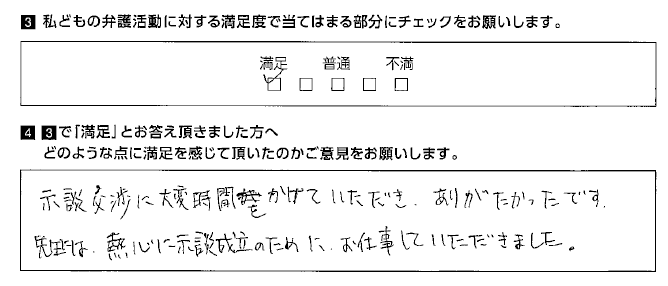 3 私どもの弁護活動に対する満足度で当てはまる部分にチェックをお願いします。
満足 普通 不満
4 3で「満足」とお答え頂きました方へ
どのような点に満足を感じて頂いたのかご意見をお願いします。
示談交渉に大変時間をかけていただき、ありがたかったです。
先生は、熱心に示談成立のために、お仕事していただきました。